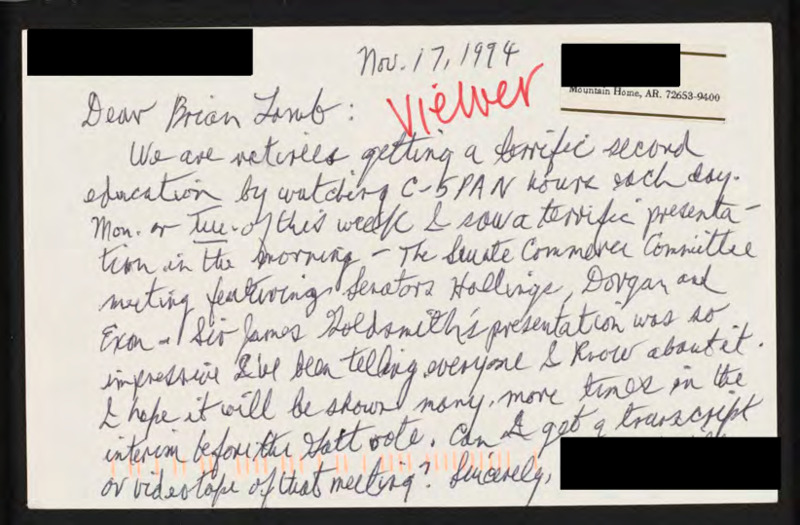 Nov. 17, 1994
Mountain Home, AR. 72653-9400
Viewer
Dear Brian Lamb:
We are retirees getting a terrific second
education by watching C-SPAN hours each day.
Mon. or Tue. of this week I saw a terrific presenta-
tion in the morning - The Senate Commerce Committee
meeting featuring Senators Hollings, Dorgan and
Exon - Sir James Goldsmith's presentation was so
impressive I've been telling everyone I know about it.
I hope it will be shown many, more times in the
interim before the Gatt vote. Can I get a transcript
or videotape of that meeting? Sincerely,